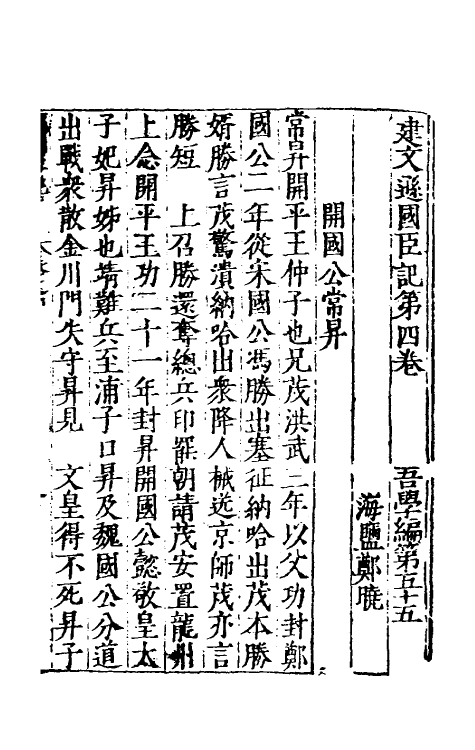 建文遜國臣記第四卷　吾學編第五十五
海鹽鄭曉
開國公常昇
常昇開平王仲子也兄茂洪武三年以父功封鄭
國公二年從宋國公馮勝出塞征納哈出茂本勝
婿勝言茂驚潰納哈出衆降人械送京師茂亦言
勝短　上召勝還奪總兵印罷朝請茂安置龍州
上念開平王功二十一年封昇開國公懿敬皇太
子妃昇姊也靖難兵至浦子口昇及魏國公分道
出戰衆散金川門失守昇見　文皇得不死昇子